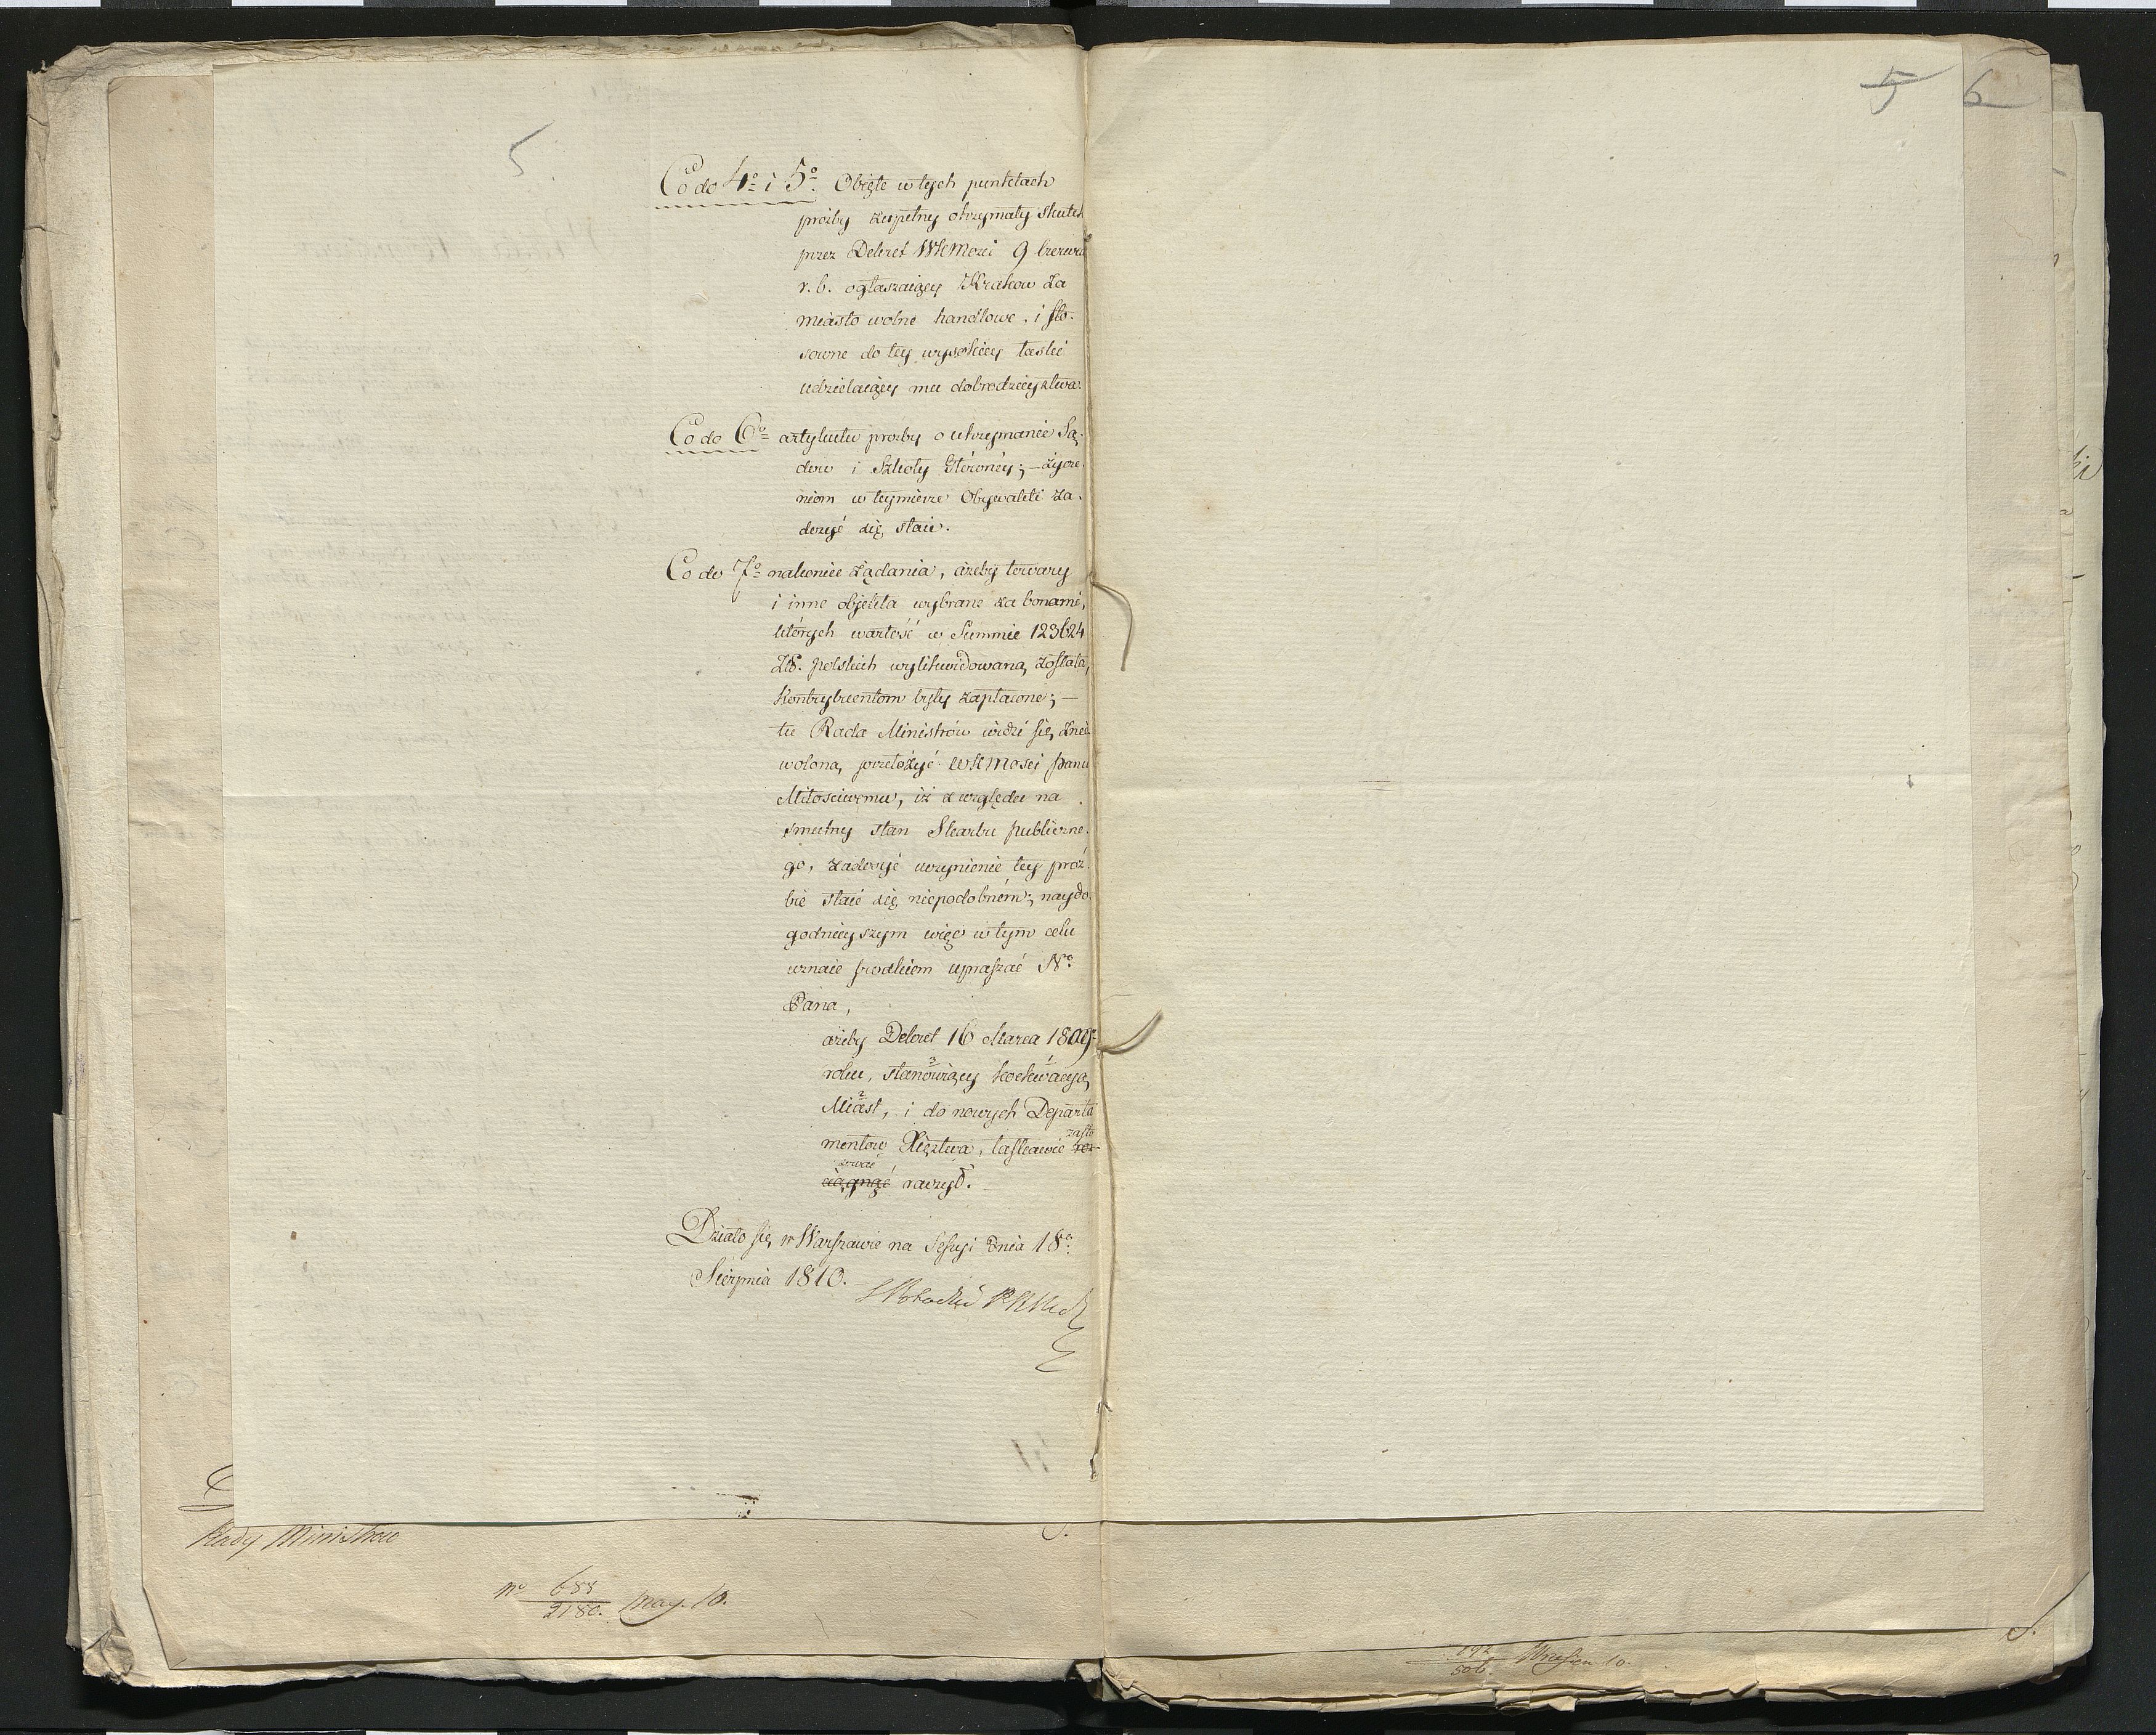 5
5 6
Co do 4º i 5º. Obięte w tych punktach
prośby zupełny otrzymały skutek
przez Dekret WKMości 9 Czerwca
r. b. ogłaszaiący Krakow za
miasto wolne handlowe, i sto-
sowne do tey wysokiey łaski
udzielaiący mu dobrodzieystwa.
Co do 6º artykułu prośby o utrzymanie Są-
dow i Szkoły Główney; – życze-
niom w teymierze Obywateli za-
dosyć się staie.
Co do 7º nakoniec żądania, ażeby towary
i inne objekta wybrane za bonami,
których wartość w Summie 123624
Zł. polskich wylikwidowaną została,
Kontrybuentom były zapłacone; –
tu Rada Ministrów widzi się znie-
woloną przełożyć WKMości Panu
Miłościwemu, iż z względu na
smutny stan Skarbu publiczne-
go, zadosyć uczynienie tey proź-
bie staie się niepodobném; naydo-
godnieyszym więc w tym celu
uznaie srodkiem upraszać Nº
Pana,
ażeby Dekret 16 Marca 1809º
roku, stanowiący lokowacyą
Miast, i do nowych Departa
mentow Xięztwa, łaskawie roz
zasto
sować
ciągnąć raczył.
Działo się w Warszawie na Sessyi dnia 18º
Sierpnia 1810.
Rady Ministrow
Nº 688
2180. May. 10.
506. Wrzesien 10.